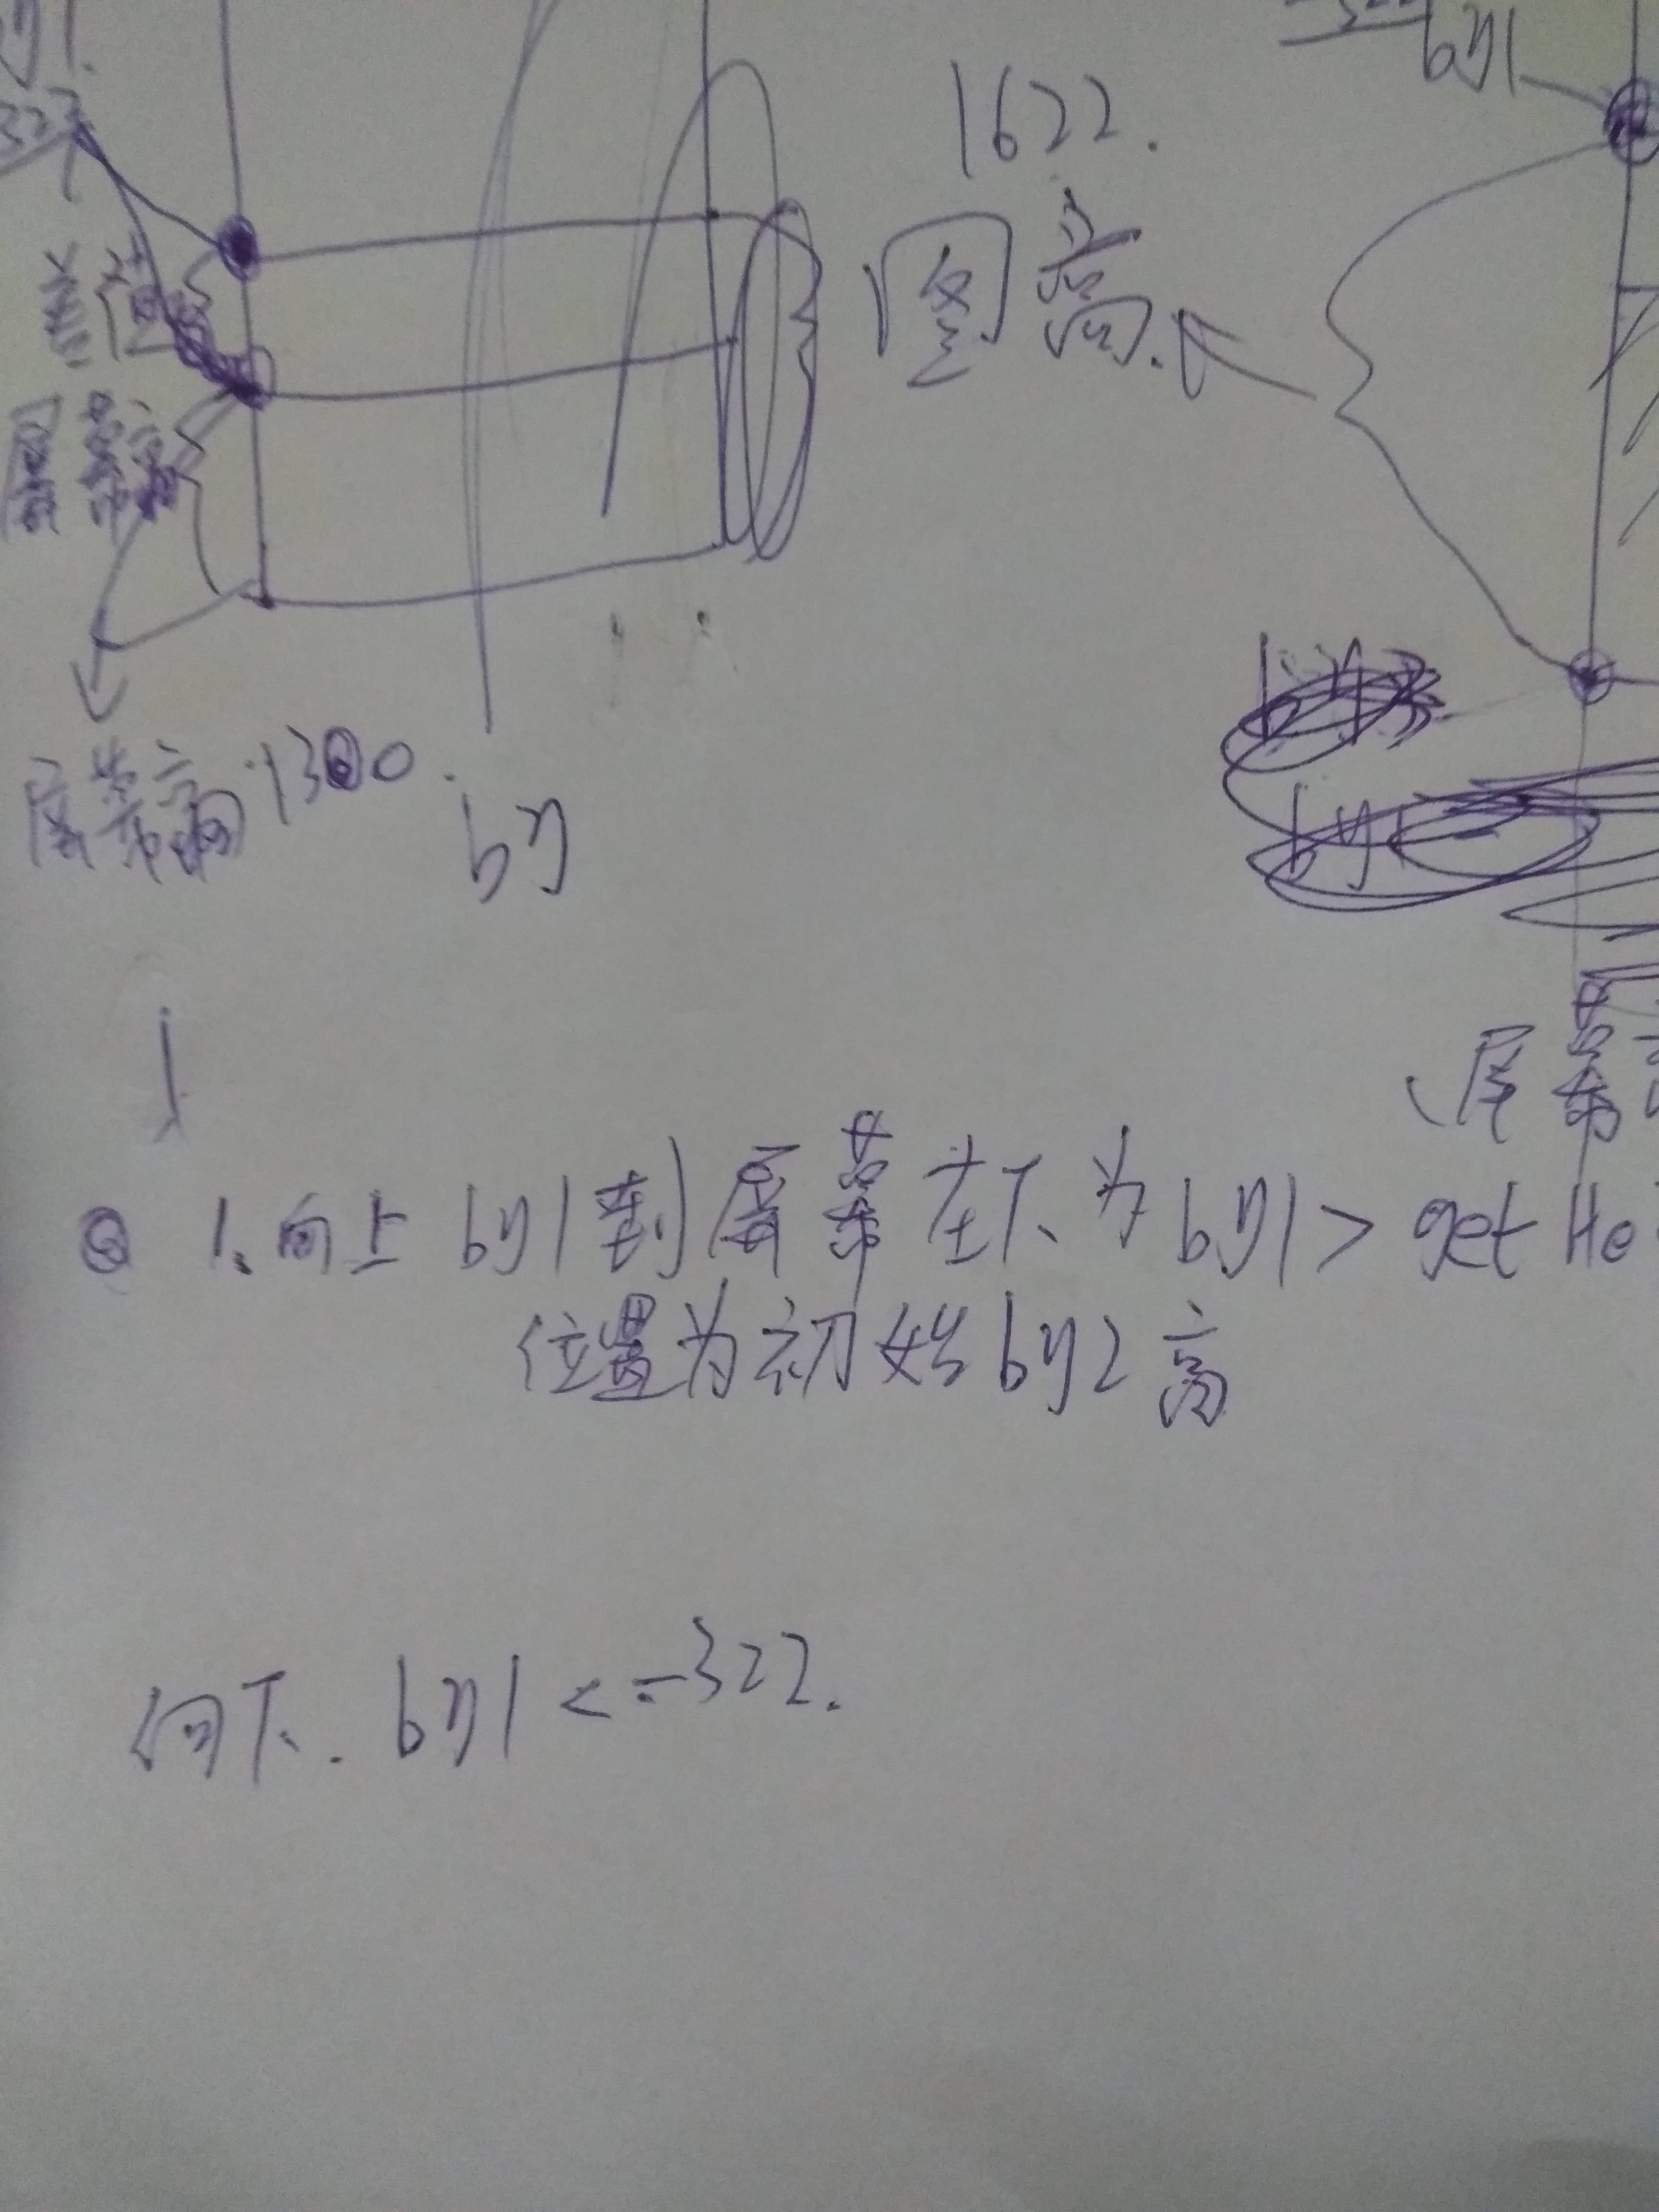 by1
1622.
图高.
差值
屏幕高
屏幕高 1300.
by
屏幕
1. 向上 by1到屏幕左下 为 by1 > get He
位置为初始 by2 高
向下. by1 <= -322.